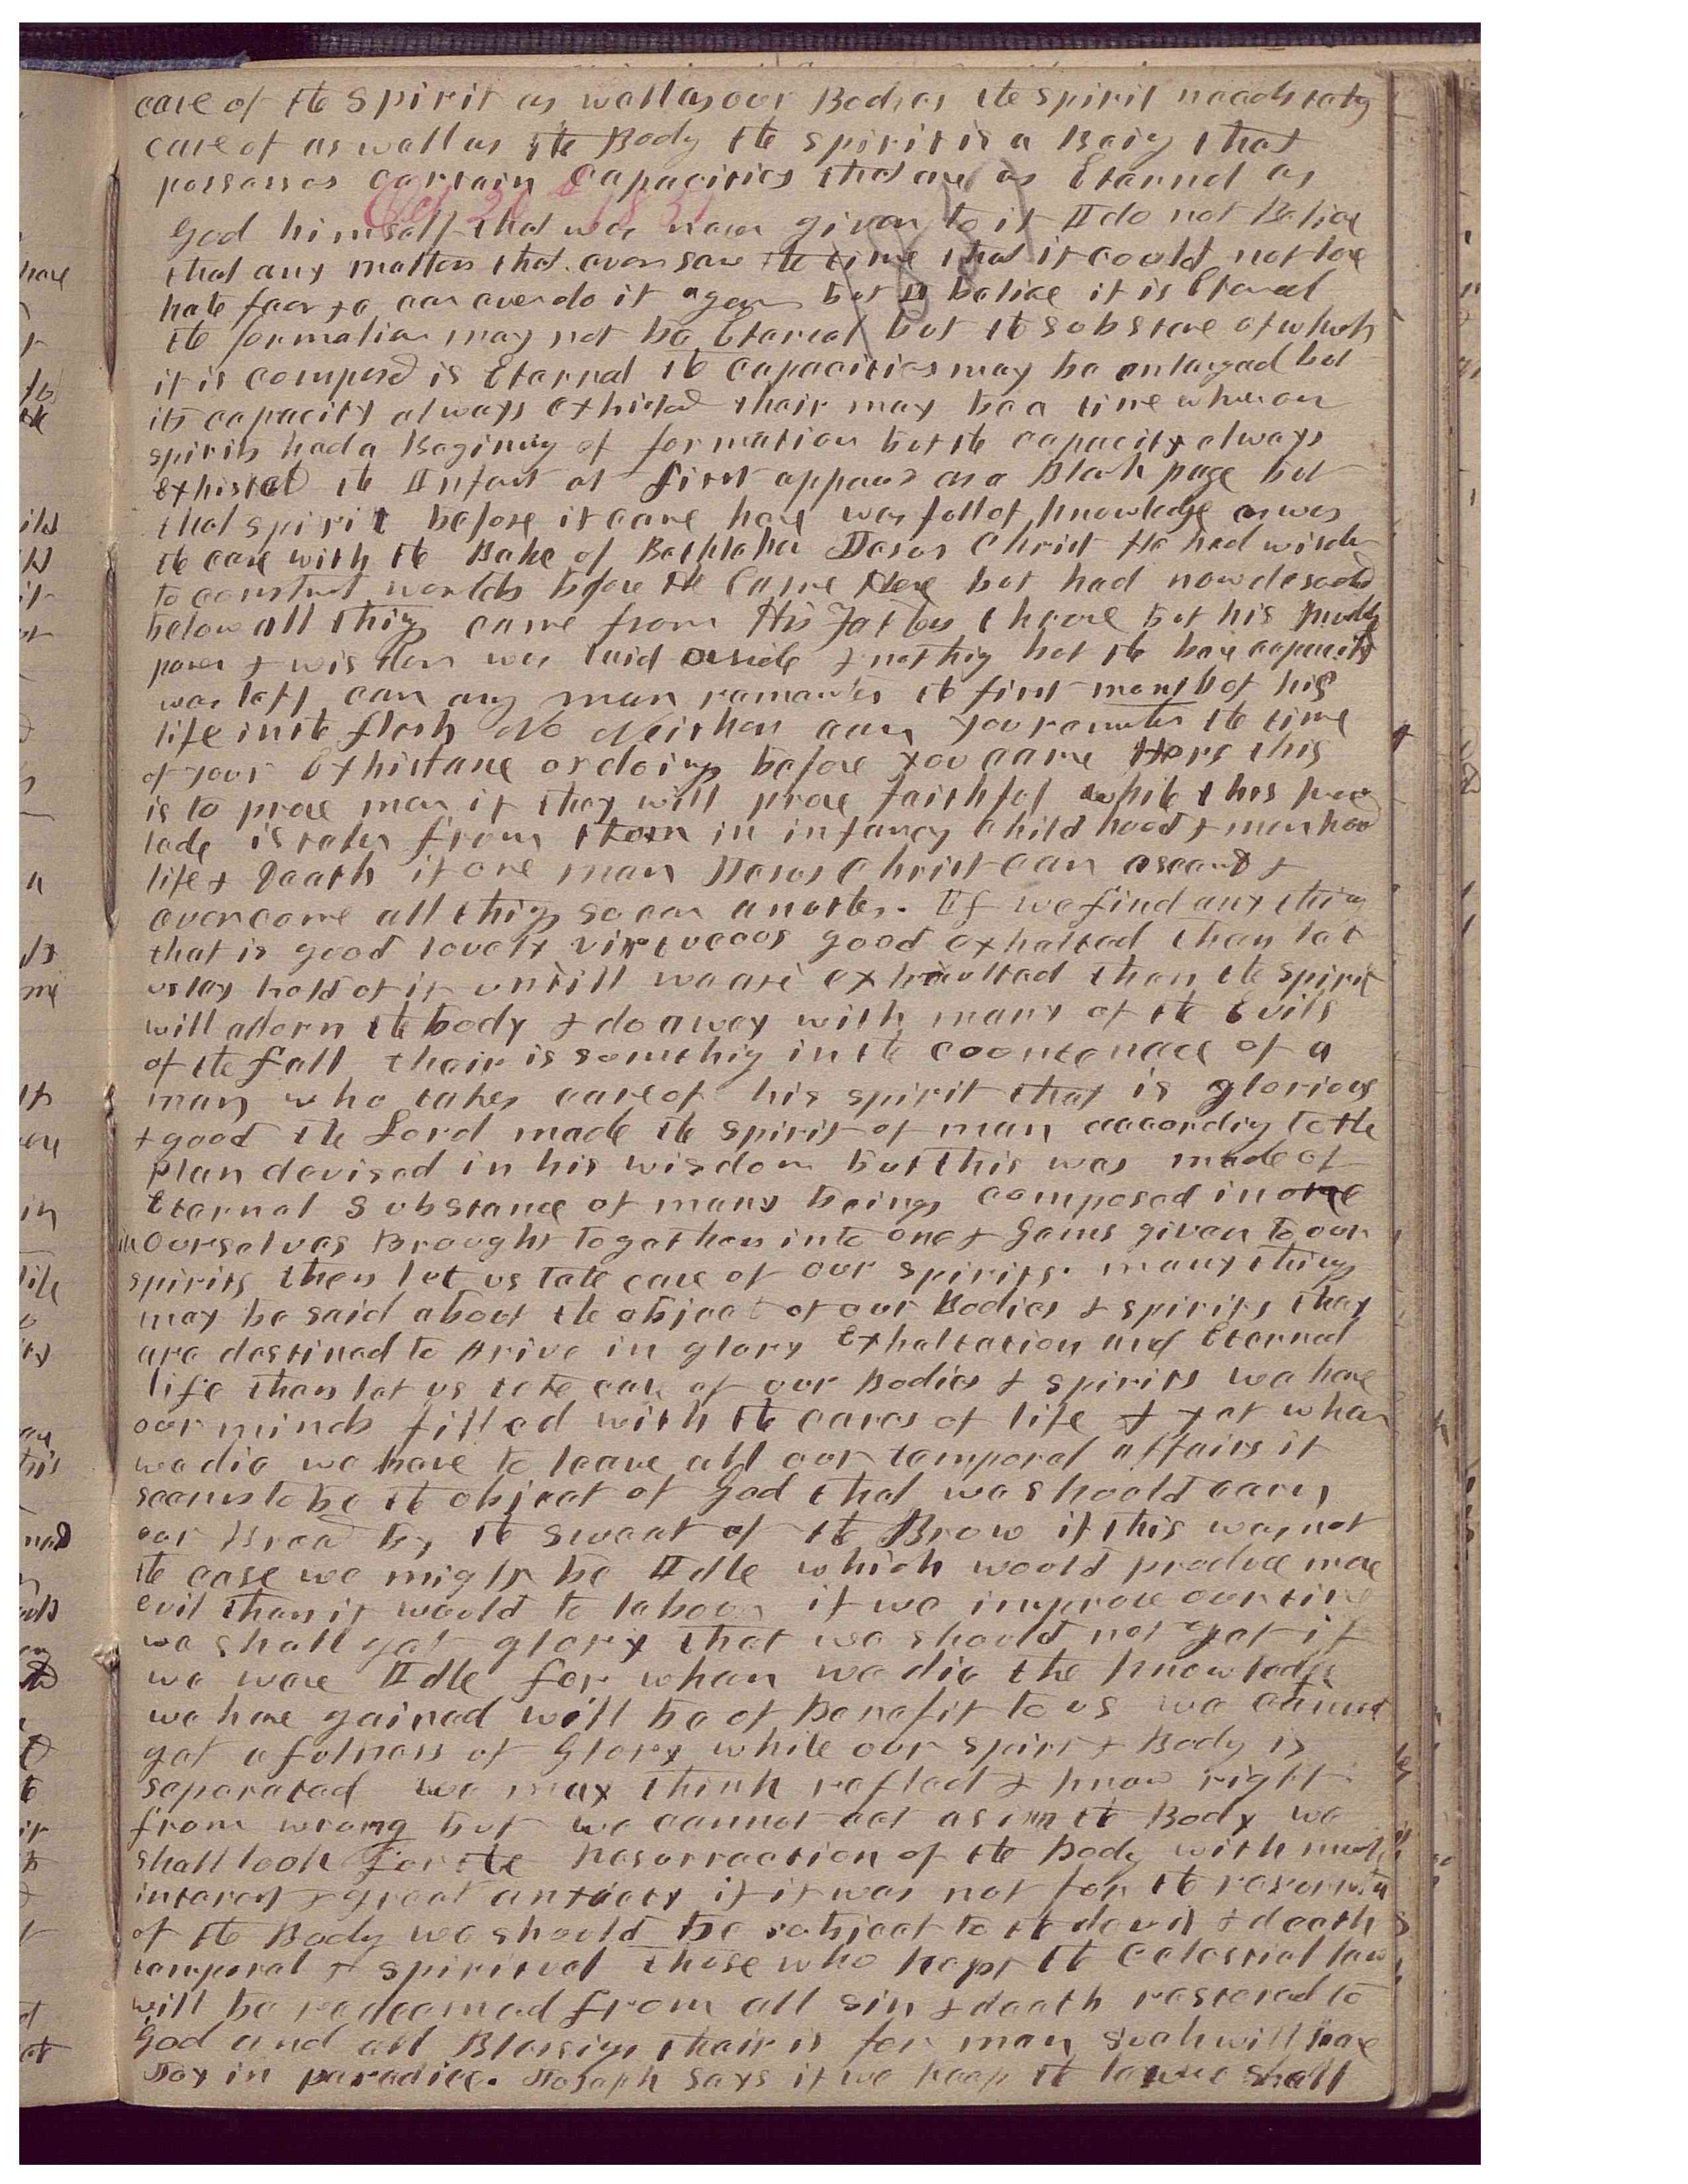 care of the spirit as well as our Bodies the spirit needs taking
care of as well as the Body the spirit is a Being that
possesses certain capacities that are as Eternal as
Oct 26 1857
God himself that was never given to it I do not Believe
that any matter that ever saw the time that it could not love
hate fear &c can ever do it again but I believe it is Eternal
the formation may not be Eternal but the substance of which
it is composed is Eternal the capacities may be enlarged but
its capacity always exhisted thair may be a time when our
spirits had a Begining of formation but the capacity always
exhisted the Infant at first appears as a Blank page but
that spirit before it came here was full of knowledge as was
the case with the Babe of Bethlahem Jesus Christ He had wisdom
to construct worlds before He Came Here but had now desended
below all things came from His Fathers throne but his
power & wisdom was laid aside & nothing but the bare capacity
was left can any man remember the first month of his
life in the flesh No Neither can you remember the time
of your Exhistance or doings before you came Here this
is to prove men if they will prove faithful while this know
ledge is taken from them in infancy childhood & manhood
life & Death if one man Jesus Christ can ascend &
overcome all things so can another. If we find any thing
that is good lovely virtueous good exhalted then let
us lay hold of it untill we are exhaulted then the spirit
will adorn the body & do away with many of the Evils
of the fall thair is somthing in the countenance of a
man who takes care of his spirit that is glorious
& good the Lord made the spirit of man according to the
plan devised in his wisdom but this was made of
Eternal Substance of many beings composed in one
in ourselves Brought together into one & Gems given to our
spirits then let us take care of our spirits. many things
may be said about the object of our Bodies & spirits they
are destined to Arive in glory Exhaltation and Eternal
life then let us take care of our Bodies & spirits we have
our minds filled with the cares of life & yet when
we die we have to leave all our temporal affairs it
seems to be the object of God that we should earn
our Bread by the sweat of the Brow if this was not
the case we might be Idle which would produce more
evil than it would to labour if we improve our time
we shall get glory that we should not get if
we were Idle for when we die the knowledge
we have gained will be of Benefit to us we cannot
get a fulness of Glory while our spirit & Body is
seperated we may think reflect & know right
from wrong but we cannot act as in the Body we
shall look for the Resurrection of the Body with much
interest & great anxiety if it was not for the resurrection
of the Body we should be subject to the devil & death
temporal & spiritual those who kept the Celestial law
will be redeemed from all sin & death restored to
God and all Blessings thair is for man such will have
Joy in paradice. Joseph says if we keep the law we shall